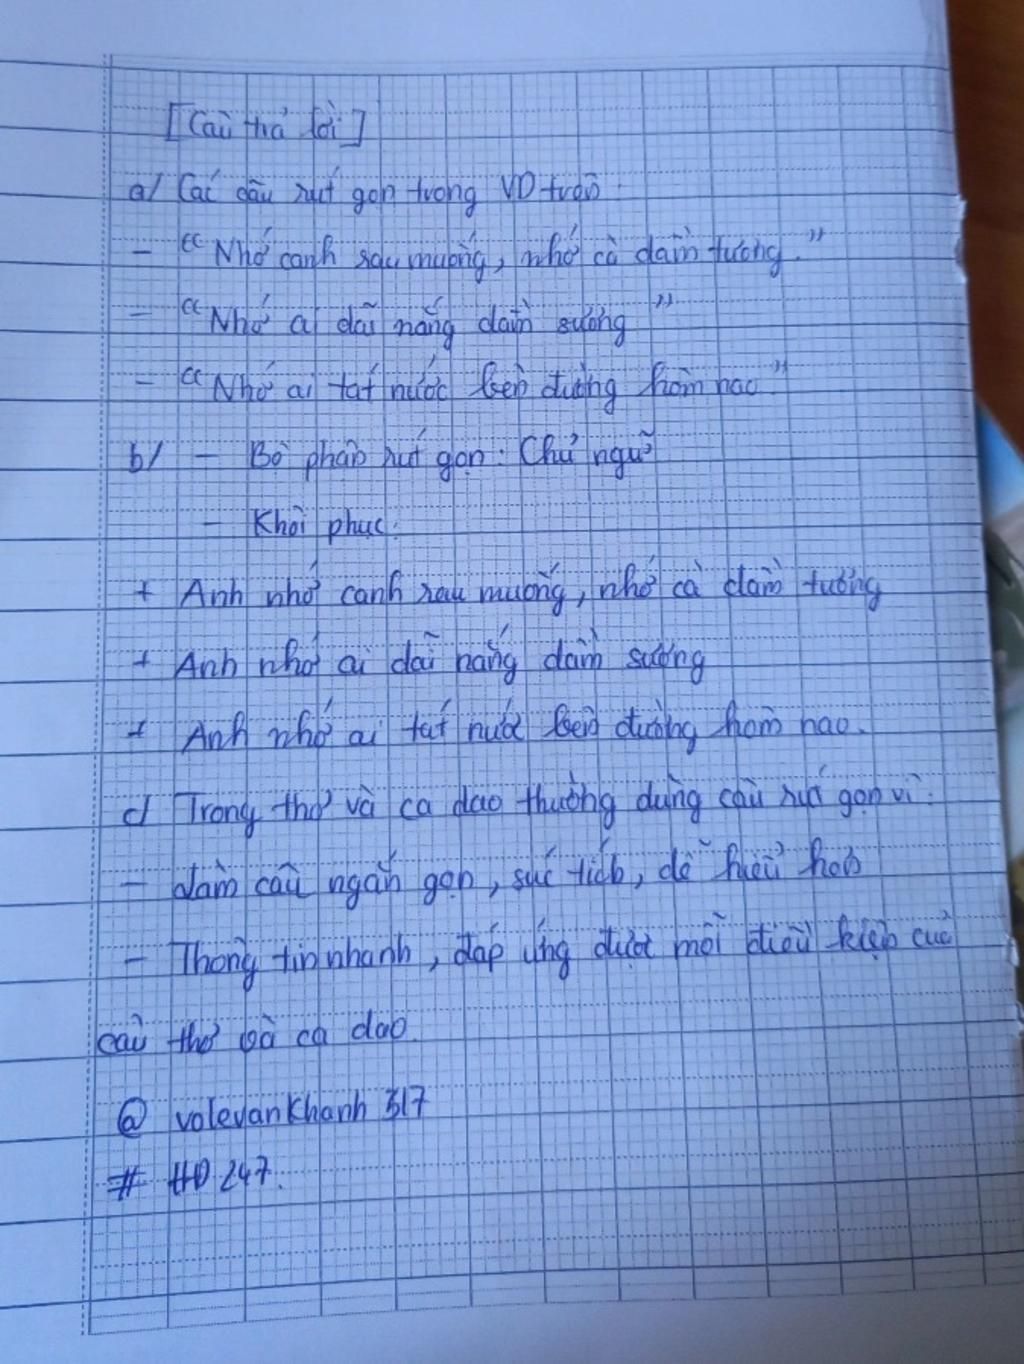 [Câu trả lời]
a/ Các câu rút gọn trong VD trên:
- "Nhớ canh rau muống, nhớ cà dầm tương."
- "Nhớ ai dãi nắng dầm sương"
- "Nhớ ai tát nước bên đường hôm nao"
b/ - Bộ phận rút gọn: Chủ ngữ
- Khôi phục:
+ Anh nhớ canh rau muống, nhớ cà dầm tương
+ Anh nhớ ai dãi nắng dầm sương
+ Anh nhớ ai tát nước bên đường hôm nao.
c/ Trong thơ và ca dao thường dùng câu rút gọn vì:
- Làm câu ngắn gọn, súc tích, dễ hiểu hơn
- Thông tin nhanh, đáp ứng được mỗi điều kiện của
câu thơ và ca dao.
@ volevankhanh 317
# HĐ 247.